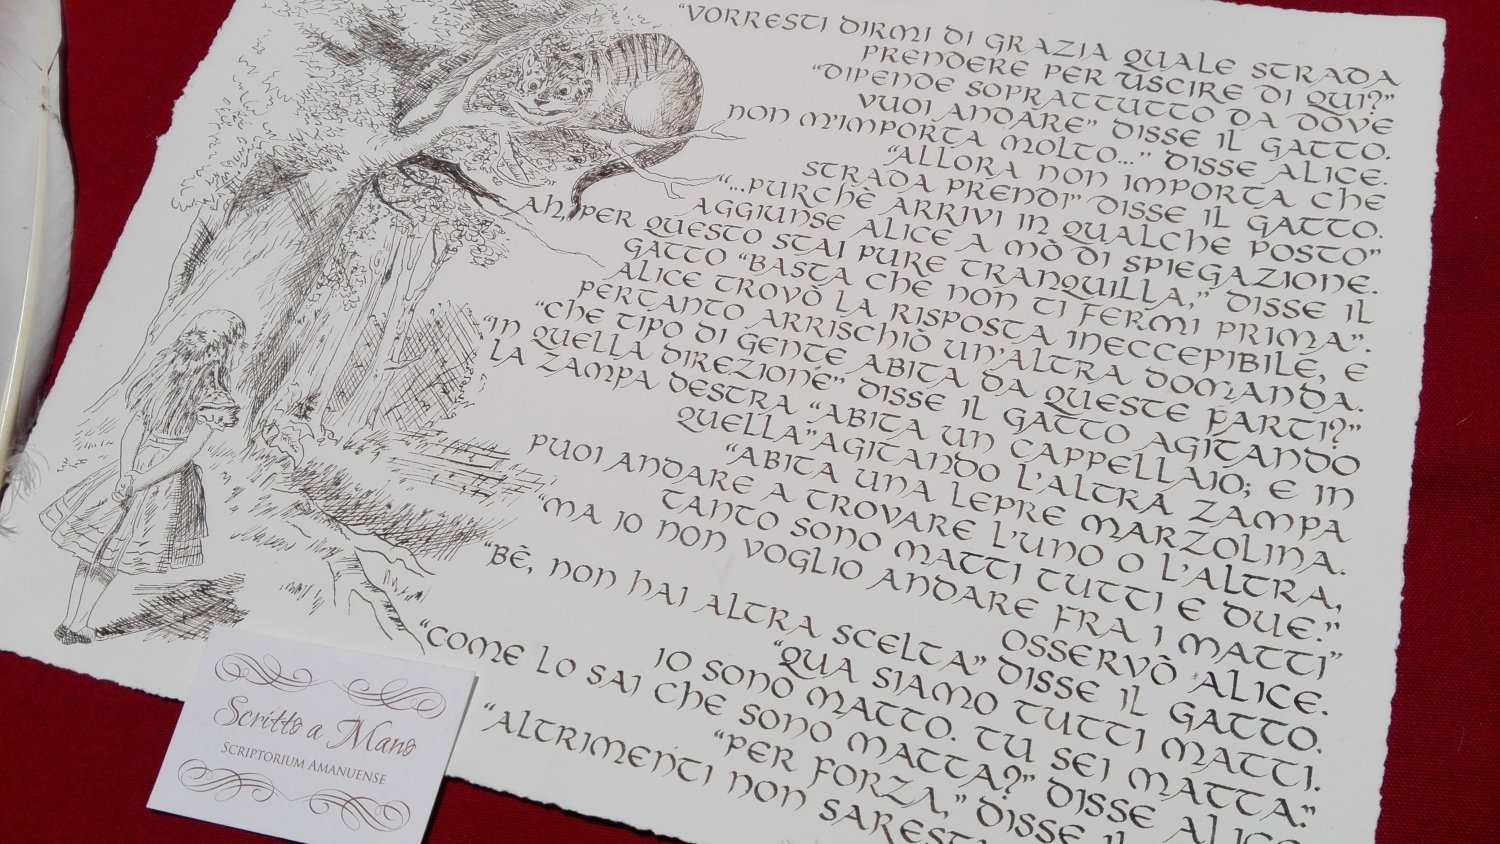 "VORRESTI DIRMI DI GRAZIA QUALE STRADA
PRENDERE PER USCIRE DI QUI?"
"DIPENDE SOPRATTUTTO DA DOVE
VUOI ANDARE" DISSE IL GATTO.
NON M'IMPORTA MOLTO..." DISSE ALICE.
"ALLORA NON IMPORTA CHE
STRADA PRENDI" DISSE IL GATTO.
"...PURCHÈ ARRIVI IN QUALCHE POSTO"
AGGIUNSE ALICE A MÒ DI SPIEGAZIONE.
AH, PER QUESTO STAI PURE TRANQUILLA," DISSE IL
GATTO "BASTA CHE NON TI FERMI PRIMA".
ALICE TROVÒ LA RISPOSTA INECCEPIBILE, E
PERTANTO ARRISCHIÒ UN'ALTRA DOMANDA.
"CHE TIPO DI GENTE ABITA DA QUESTE PARTI?"
"IN QUELLA DIREZIONE" DISSE IL GATTO AGITANDO
LA ZAMPA DESTRA "ABITA UN CAPPELLAIO; E IN
QUELLA" AGITANDO L'ALTRA ZAMPA
"ABITA UNA LEPRE MARZOLINA.
PUOI ANDARE A TROVARE L'UNO O L'ALTRA,
TANTO SONO MATTI TUTTI E DUE."
"MA IO NON VOGLIO ANDARE FRA I MATTI"
OSSERVÒ ALICE.
"BÈ, NON HAI ALTRA SCELTA" DISSE IL GATTO.
"QUA SIAMO TUTTI MATTI.
IO SONO MATTO. TU SEI MATTA."
"COME LO SAI CHE SONO MATTA?" DISSE ALICE
"PER FORZA," DISSE IL
"ALTRIMENTI NON SARESTI
Scritto a Mano
SCRIPTORIUM AMANUENSE